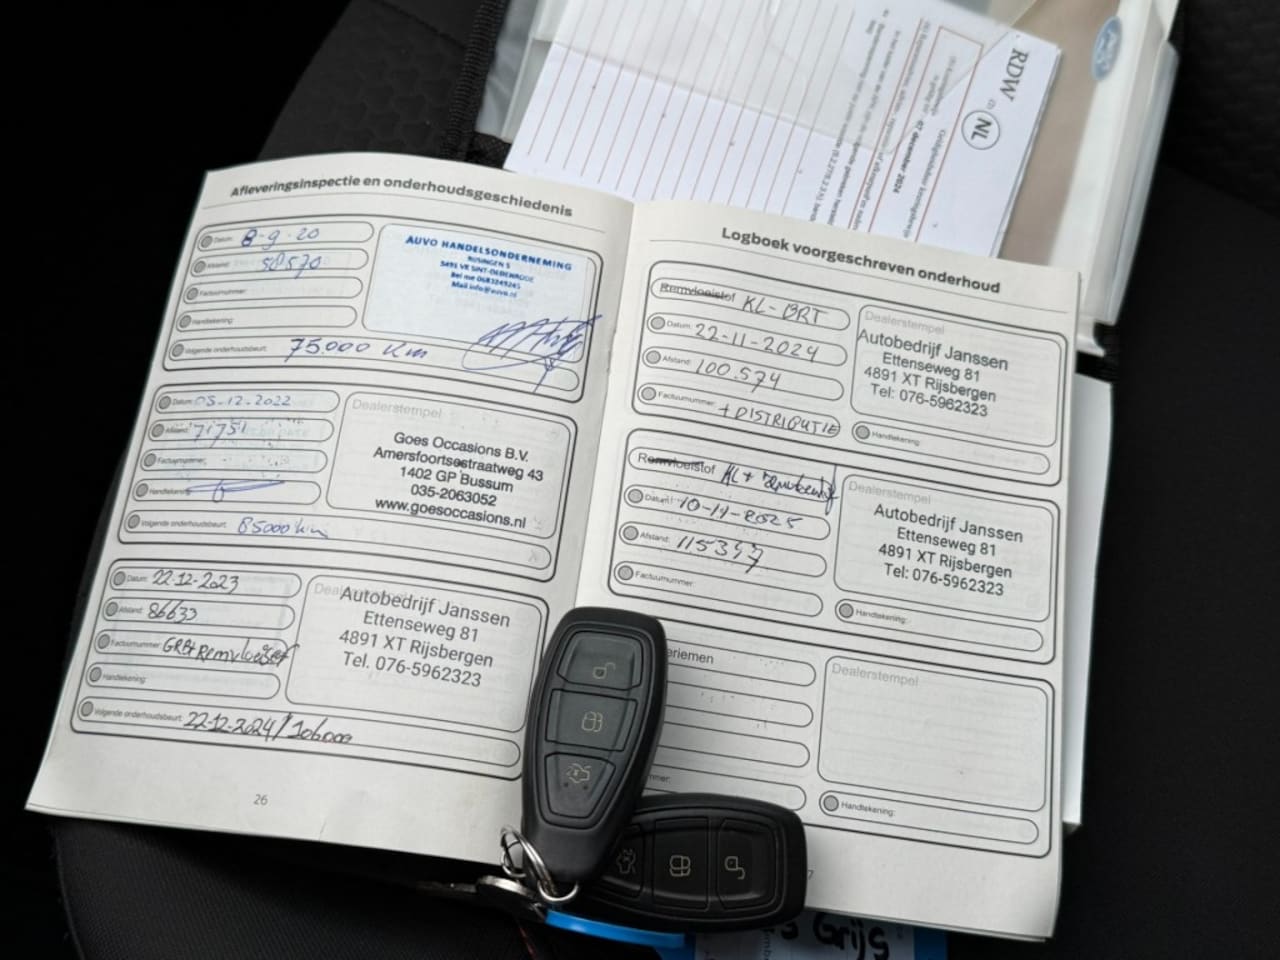 RDW
NL
07 december 2024
Afleveringsinspectie en onderhoudsgeschiedenis
Datum: 8-9-20
Afstand: 58570
Factuurnummer:
Handtekening:
Volgende onderhoudsbeurt: 75.000 km
AUVO HANDELSONDERNEMING
RIJSINGEN 5
5491 VK SINT-OEDENRODE
Mail info@auvo.nl
Datum: 05-12-2022
Afstand: 71751
Factuurnummer:
Handtekening:
Volgende onderhoudsbeurt: 85000 km
Dealerstempel
Goes Occasions B.V.
Amersfoortsestraatweg 43
1402 GP Bussum
035-2063052
www.goesoccasions.nl
Datum: 22-12-2023
Afstand: 86633
Factuurnummer: GRBt Remvloeistof
Handtekening:
Volgende onderhoudsbeurt: 22-12-2024/106000
Autobedrijf Janssen
Ettenseweg 81
4891 XT Rijsbergen
Tel. 076-5962323
26
Logboek voorgeschreven onderhoud
Remvloeistof KL-BRT
Datum: 22-11-2024
Afstand: 100.574
Factuurnummer: + DISTRIBUTIE
Dealerstempel
Autobedrijf Janssen
Ettenseweg 81
4891 XT Rijsbergen
Tel: 076-5962323
Handtekening:
Remvloeistof KL +
Datum: 10-11-2025
Afstand: 115347
Factuurnummer:
Dealerstempel
Autobedrijf Janssen
Ettenseweg 81
4891 XT Rijsbergen
Tel: 076-5962323
Handtekening:
eriemen
mmer:
Dealerstempel
Handtekening:
7
Grijs